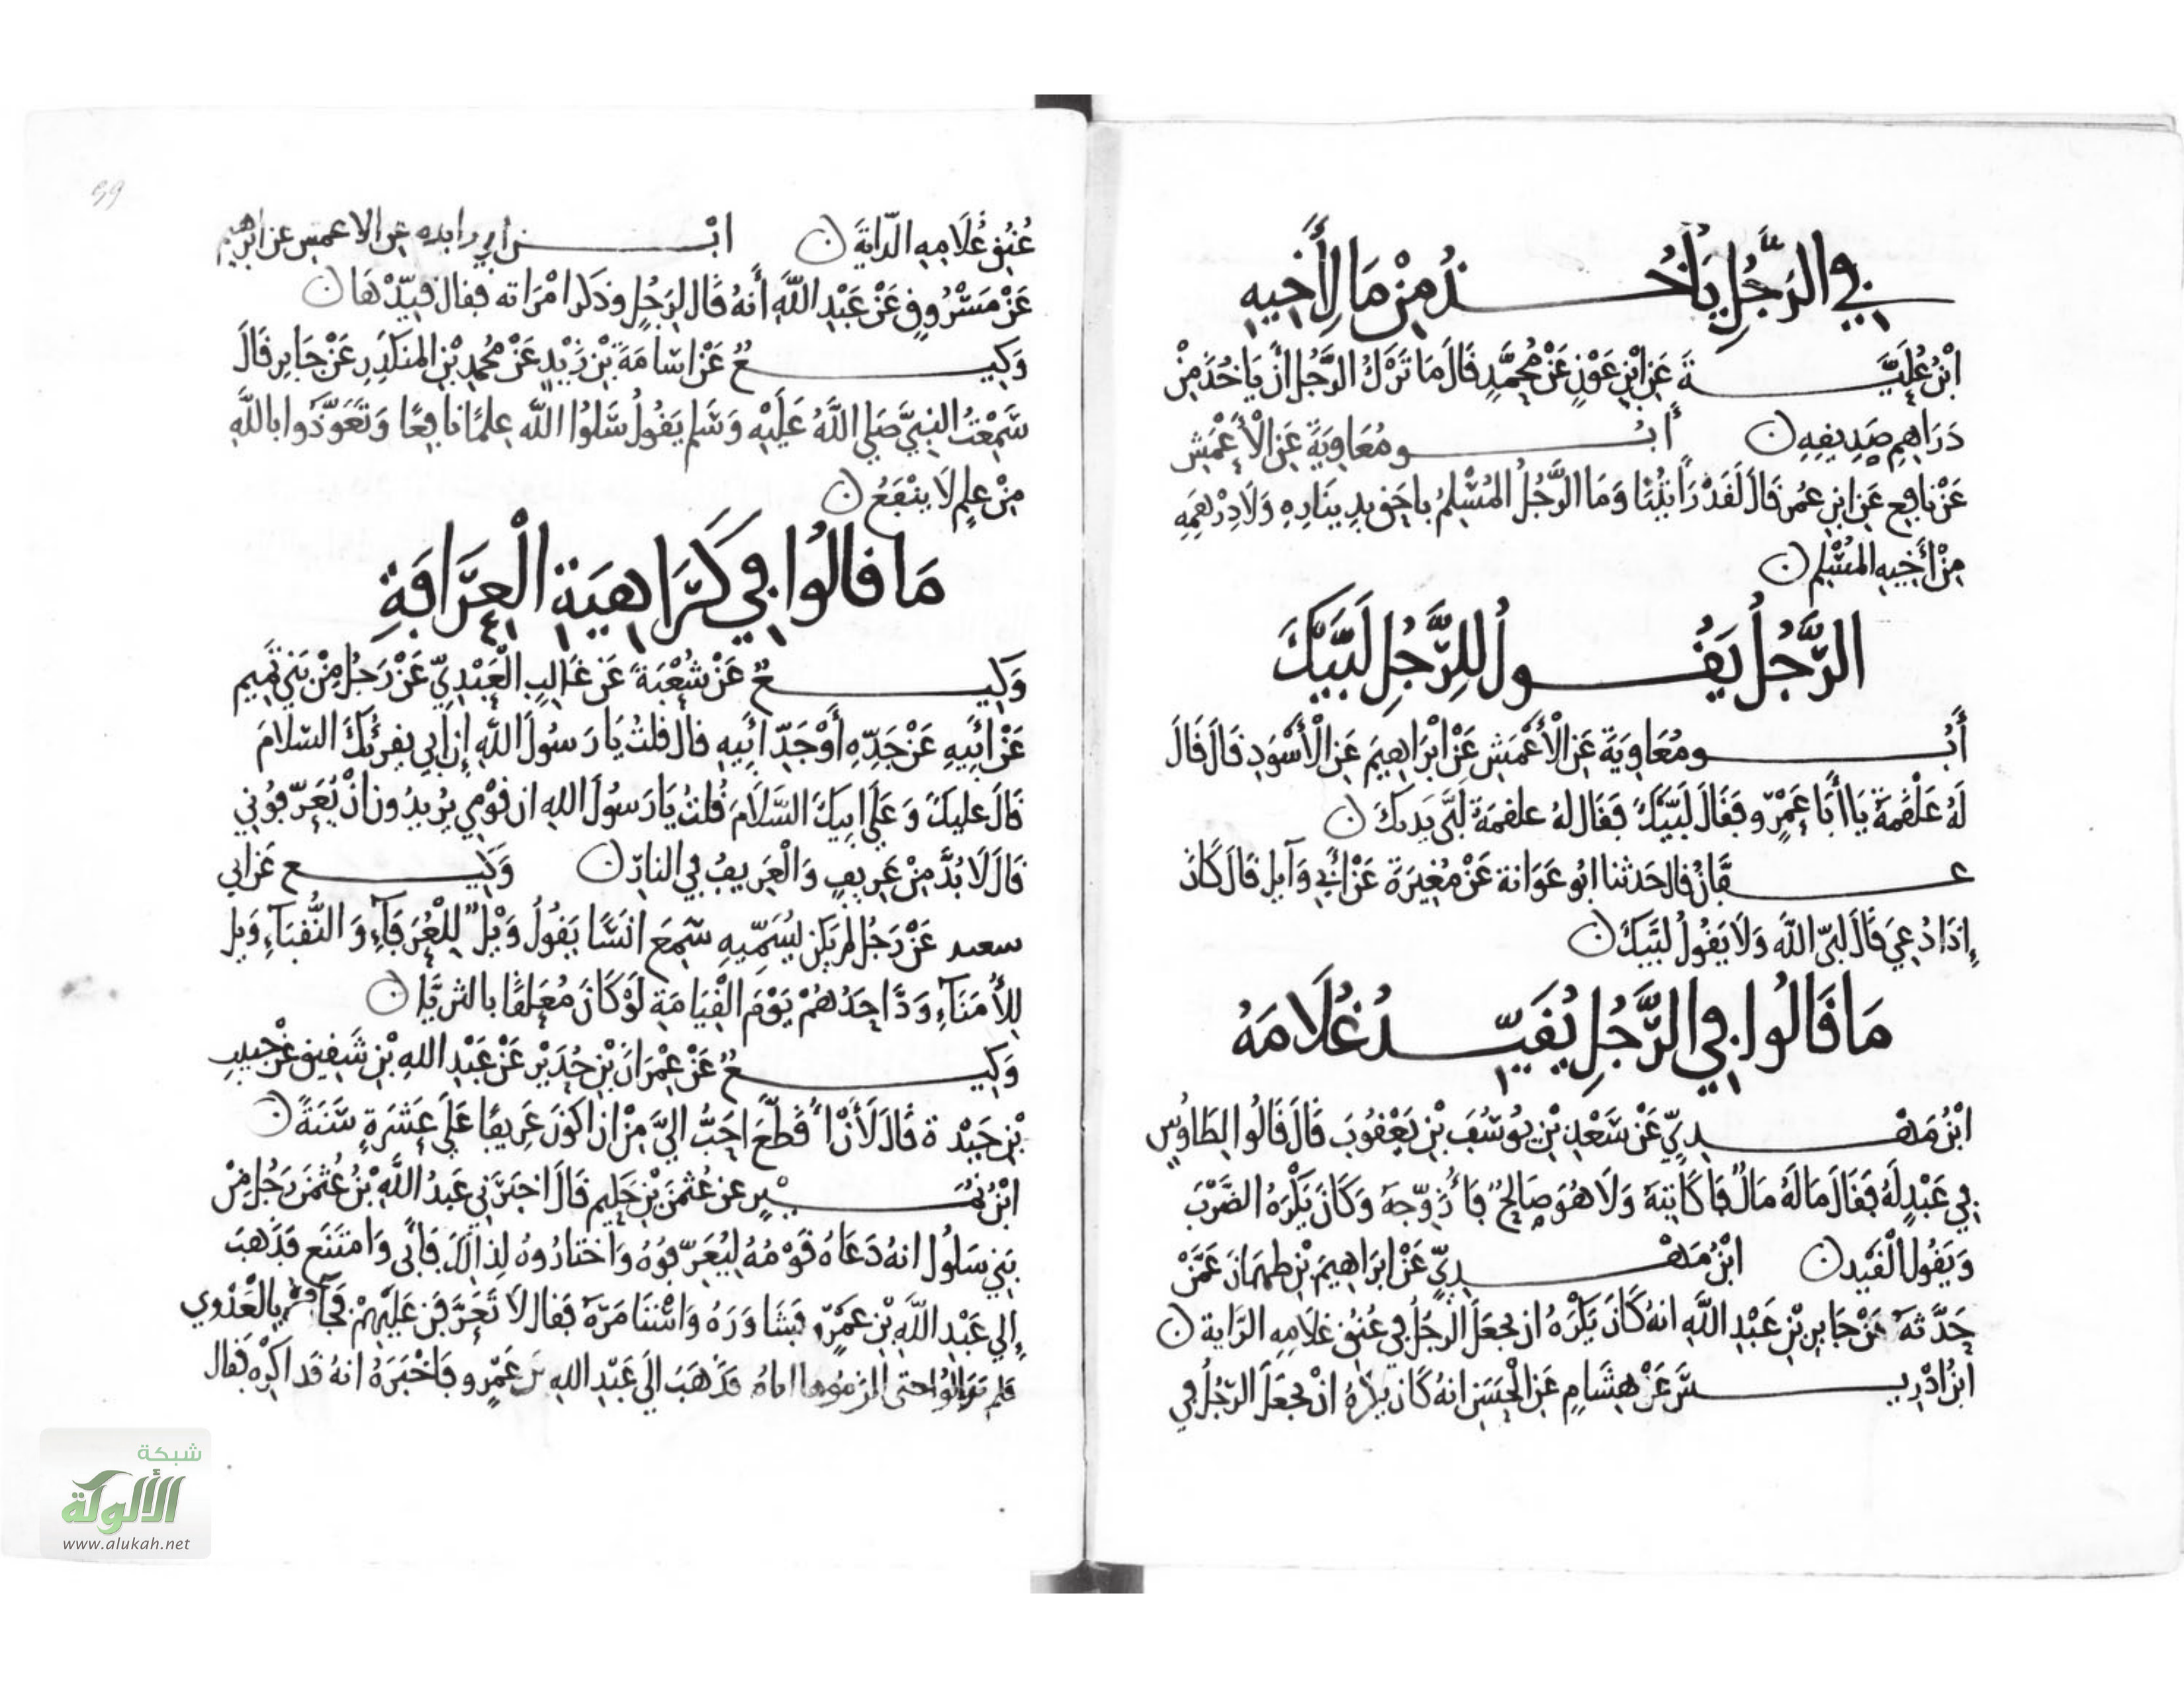 في الرَّجُلِ يَأْخُذُ مِنْ مَالِ أَخِيهِ
ابْنُ عُلَيَّةَ عَنِ ابْنِ عَوْنٍ عَنْ مُحَمَّدٍ قَالَ مَا تَرَكَ الرَّجُلُ أَنْ يَأْخُذَ مِنْ
دَرَاهِمِ صَدِيقِهِ ن أَبُو مُعَاوِيَةَ عَنِ الْأَعْمَشِ
عَنْ نَافِعٍ عَنِ ابْنِ عُمَرَ قَالَ لَقَدْ رَأَيْتُنَا وَمَا الرَّجُلُ الْمُسْلِمُ بِأَحَقَّ بِدِينَارِهِ وَلَا دِرْهَمِهِ
مِنْ أَخِيهِ الْمُسْلِمِ ن
الرَّجُلُ يَقُولُ لِلرَّجُلِ لَبَّيْكَ
أَبُو مُعَاوِيَةَ عَنِ الْأَعْمَشِ عَنْ ابْرَاهِيمَ عَنِ الْأَسْوَدِ قَالَ قَالَ
لَهُ عَلْقَمَةُ يَا أَبَا عَمْرٍو فَقَالَ لَبَّيْكَ فَقَالَ لَهُ علقمَةُ لَبَّى يَدَيْكَ ن
عَفَّانُ قَالَ حَدثنا ابُو عَوَانة عَنْ مُغِيرَةَ عَنْ أَبِي وَآيِل قَالَ كَانَ
إِذَا دُعِيَ قَالَ لَبَّى اللَّهَ وَلَا يَقُولُ لَبَّيْكَ ن
مَا قَالُوا فِي الرَّجُلِ يُقَيِّدُ غُلَامَهُ
ابْنُ مَهْدِيٍّ عَنْ سَعْدِ بْنِ يُوسُفَ بْنِ يَعْقُوبَ قَالَ قَالُوا لِطَاوُسٍ
فِي عَبْدٍ لَهُ فَقَالَ مَا لَهُ مَالٌ فَأُكَاتِبَهُ وَلَا هُوَ صَالِحٌ فَأُزَوِّجَهُ وَكَانَ يَكْرَهُ الضَّرْبَ
وَيَقُولُ الْقَيْد ن ابْنُ مَهْدِيٍّ عَنْ ابْرَاهِيمَ بْنِ طَهْمَانَ عَمَّنْ
حَدَّثَهُ عَنْ جَابِرِ بْنِ عَبْدِ اللَّهِ انهُ كَانَ يَكْرَهُ ان يجعَلَ الرَّجُلُ فِي عُنُقِ غلَامِهِ الرَّايَة ن
ابْنُ ادْرِيسَ عَنْ هِشَامٍ عَنِ الْحَسَنِ انهُ كَانَ يَكْرَهُ انْ يجعَلَ الرّجُلُ فِي
عُنُقِ غُلَامِهِ الرَّايَةَ ن ابْنُ ابي زايده عن الاعمش عن ابرهيم
عَنْ مَسْرُوقٍ عَنْ عَبْدِ اللَّهِ أَنهُ قَالَ لِرَجُلٍ وذكَرَ امْرَاته فقال قَيِّدْهَا ن
وَكِيعٌ عَنْ اسَامَةَ بْنِ زَيْدٍ عَنْ مُحَمدِ بْنِ المنكَدِرِ عَنْ جَابِر قَالَ
سَمِعْتُ النبِيَّ صَلى اللَّهُ عَلَيْهِ وَسَلم يَقُولُ سَلُوا اللَّه عِلمًا نافِعًا وَتَعَوَّذُوا باللَّهِ
مِنْ علمٍ لَا ينْفَعُ ن
مَا قَالُوا فِي كَرَاهِيَةِ الْعِرَافَةِ
وَكِيعٌ عَنْ شُعْبَةَ عَن غَالِبِ الْعَبْدِيِّ عَنْ رَجُلٍ مِنْ بَنِي تَمِيم
عَنْ أَبِيهِ عَنْ جَدِّهِ أَوْ جَدِّ أَبِيهِ قال قلتُ يَا رَسُولَ اللَّهِ إِن أبي يقرِئُكَ السّلَامَ
قَالَ عليكَ وَعَلَى ابِيكَ السَّلَامَ قُلتُ يَا رَسُولَ الله ان قَوْمِي يُرِيدُون انْ يُعَرِّفُونِي
قَالَ لَا بُدَّ مِنْ عَرِيفٍ وَالْعَرِيفُ فِي النارِ ن وَكِيع عَن ابي
سعيد عَنْ رَجُلٍ لم يَكن يُسَمِّيهِ سَمِعَ انَسًا يَقُولُ وَيْلٌ لِلْعُرَفَآءِ وَالنُّقَبَآءِ وَيل
لِلْأُمَنَآءِ وَدَّ احَدُهُمْ يَوْمَ الْقِيَامَةِ لَوْ كَانَ مُعَلقًا بالثريَّا ن
وَكِيعٌ عَنْ عِمْرَانَ بْنِ حُدَيْر عَنْ عَبْدِ اللهِ بْنِ شَقِيقٍ عَنْ حَبِيبِ
بْنِ حَيْدة قَالَ لَأَنْ أُقَطَّعَ احَبُّ الَيَّ مِنْ ان اكونَ عَرِيفًا عَلَى عَشَرَةٍ سَنَةً ن
ابْنُ نُمَيْرٍ عن عُثمَنَ بْنِ حَكِيمٍ قَالَ اخبَرَنِي عَبدُ اللَّهِ بْنُ عُثمَنَ رَجُلٌ مِنْ
بَنِي سَلُول انهُ دَعَاهُ قَوْمُهُ لِيُعَرِّفُوهُ وَاخْتارُوهُ لِذَالِكَ فَأَبَى وَامتَنَع فَذَهَبَ
إِلى عَبْدِ اللَّهِ بْنِ عَمْرٍو فشَاوَرَهُ وَاسْتَامَرَهُ فَقال لَا تَعَرَّفَن عَلَيْهِمْ فجَآ بِالْعَدْوي
فلم يَزَالُوا حتى الزمُوها اياهُ فذَهَبَ الَى عَبْدِ اللهِ بن عَمْرٍو فَاخْبَرَهُ انهُ قد اكرِهَ فقال
شبكة
الألوكة
www.alukah.net